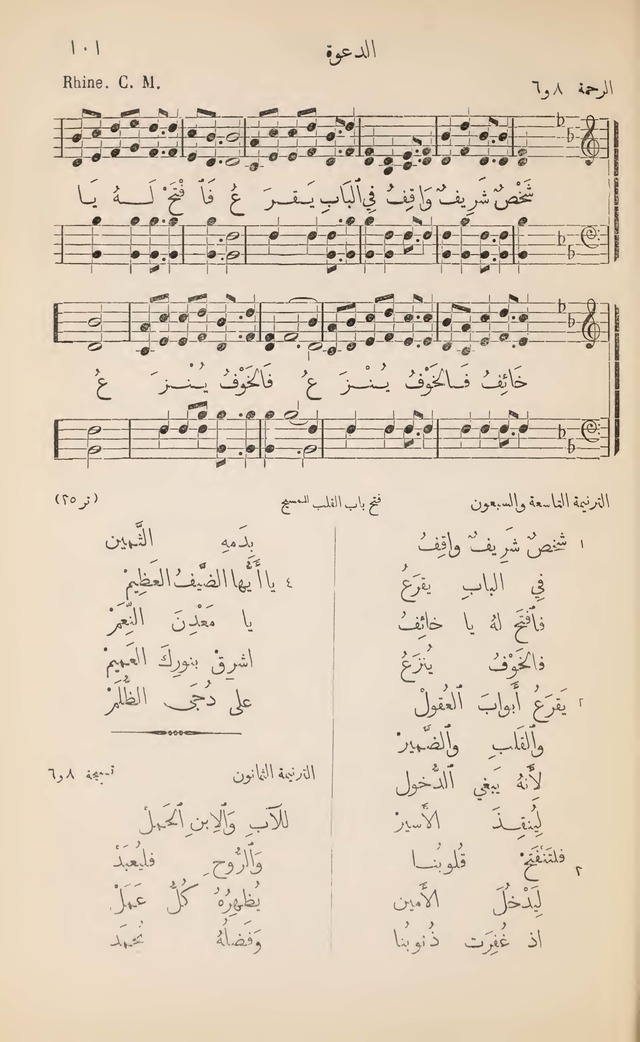 ١٠١
الدعوة
Rhine. C. M.
الرحمة ٨ و٦
شَخْصٌ شَرِيفٌ وَاقِفُ فِي ٱلبَابِ يَـقـرَعُ فَٱفْتَحْ لَـهُ يَا
خَائِفُ فَـالخَوْفُ يُـنْـزَعُ فَالخَوْفُ يُـنْـزَعُ
الترنيمة التاسعة والسبعون
فتح باب القلب للمسيح
(تر ٢٥)
١ شخصٌ شَرِيفٌ واقِفُ
فِي البابِ يقرَعُ
فٱفتَح لهُ يا خائفُ
فالخَوْفُ يُنزَعُ
٢ يَقرَعُ أَبوابَ ٱلعُقولْ
وٱلقلبِ وٱلضَّميرْ
لِأَنهُ يَبغي ٱلدُّخول
لِيُنقِـذَ الأَسيرْ
٣ فلتَنفَتِحْ قُلوبُنـا
لِيَدْخُلَ الأَمين
اذ غُفِرَت ذُنوبُنا
بِدَمهِ الثَّمين
٤ يا أَيُّها الضَّيفُ العَظِيمْ
يا مَعْدِنَ النِّعَمْ
اشرِقْ بنورِكَ العَمِيمْ
على دُجَى الظُّلَمْ
الترنيمة الثمانون
تسبيحة ٨ و٦
للآبِ وَٱلِابنِ ٱلحَمَلْ
وَٱلرُّوحِ فليُعبَدْ
يُظهِرُهُ كُلُّ عَمَلْ
وَفَضلُهُ يُحمَد